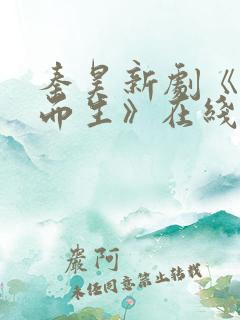 秦昊新劇《
而生》在綫
嚴阿
未经同意禁止转载